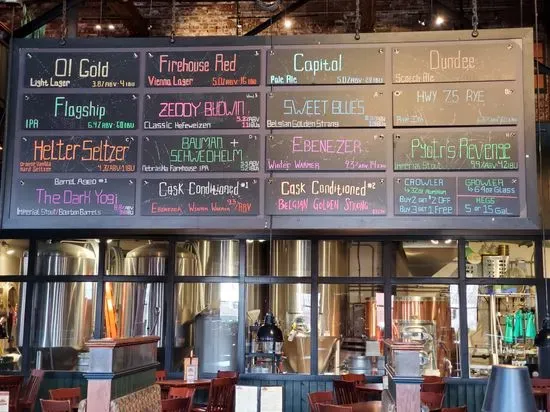 O! Gold
Light Lager 3.8% ABV - 4 IBU
Firehouse Red
Vienna Lager 5.0% ABV - 16 IBU
Capitol
Pale Ale 5.0% ABV
Dundee
Scotch Ale
Flagship
IPA 6.4% ABV - 60 IBU
ZEDDY BROWN
Classic Hefeweizen
SWEET BLUES
Belgian Golden Strong
HWY 75 RYE
Helter Seltzer
Orange Vanilla
Hard Seltzer
4.3% ABV - 1 IBU
BAUMAN +
SCHWEDHELM
Nebraska Farmhouse IPA
EBENEZER
Winter Warmer 9.3%
Pyotr's Revenge
Imperial Stout
Barrel Aged #1
The Dark Yogi
Imperial Stout/Bourbon Barrels
Cask Conditioned #1
Ebenezer Winter Warmer 9.3% ABV
Cask Conditioned #2
Belgian Golden Strong
CROWLER
Buy 2 get $2 Off
Buy 3 get 1 Free
GROWLER
64oz Glass
KEGS
5 or 15 Gal.